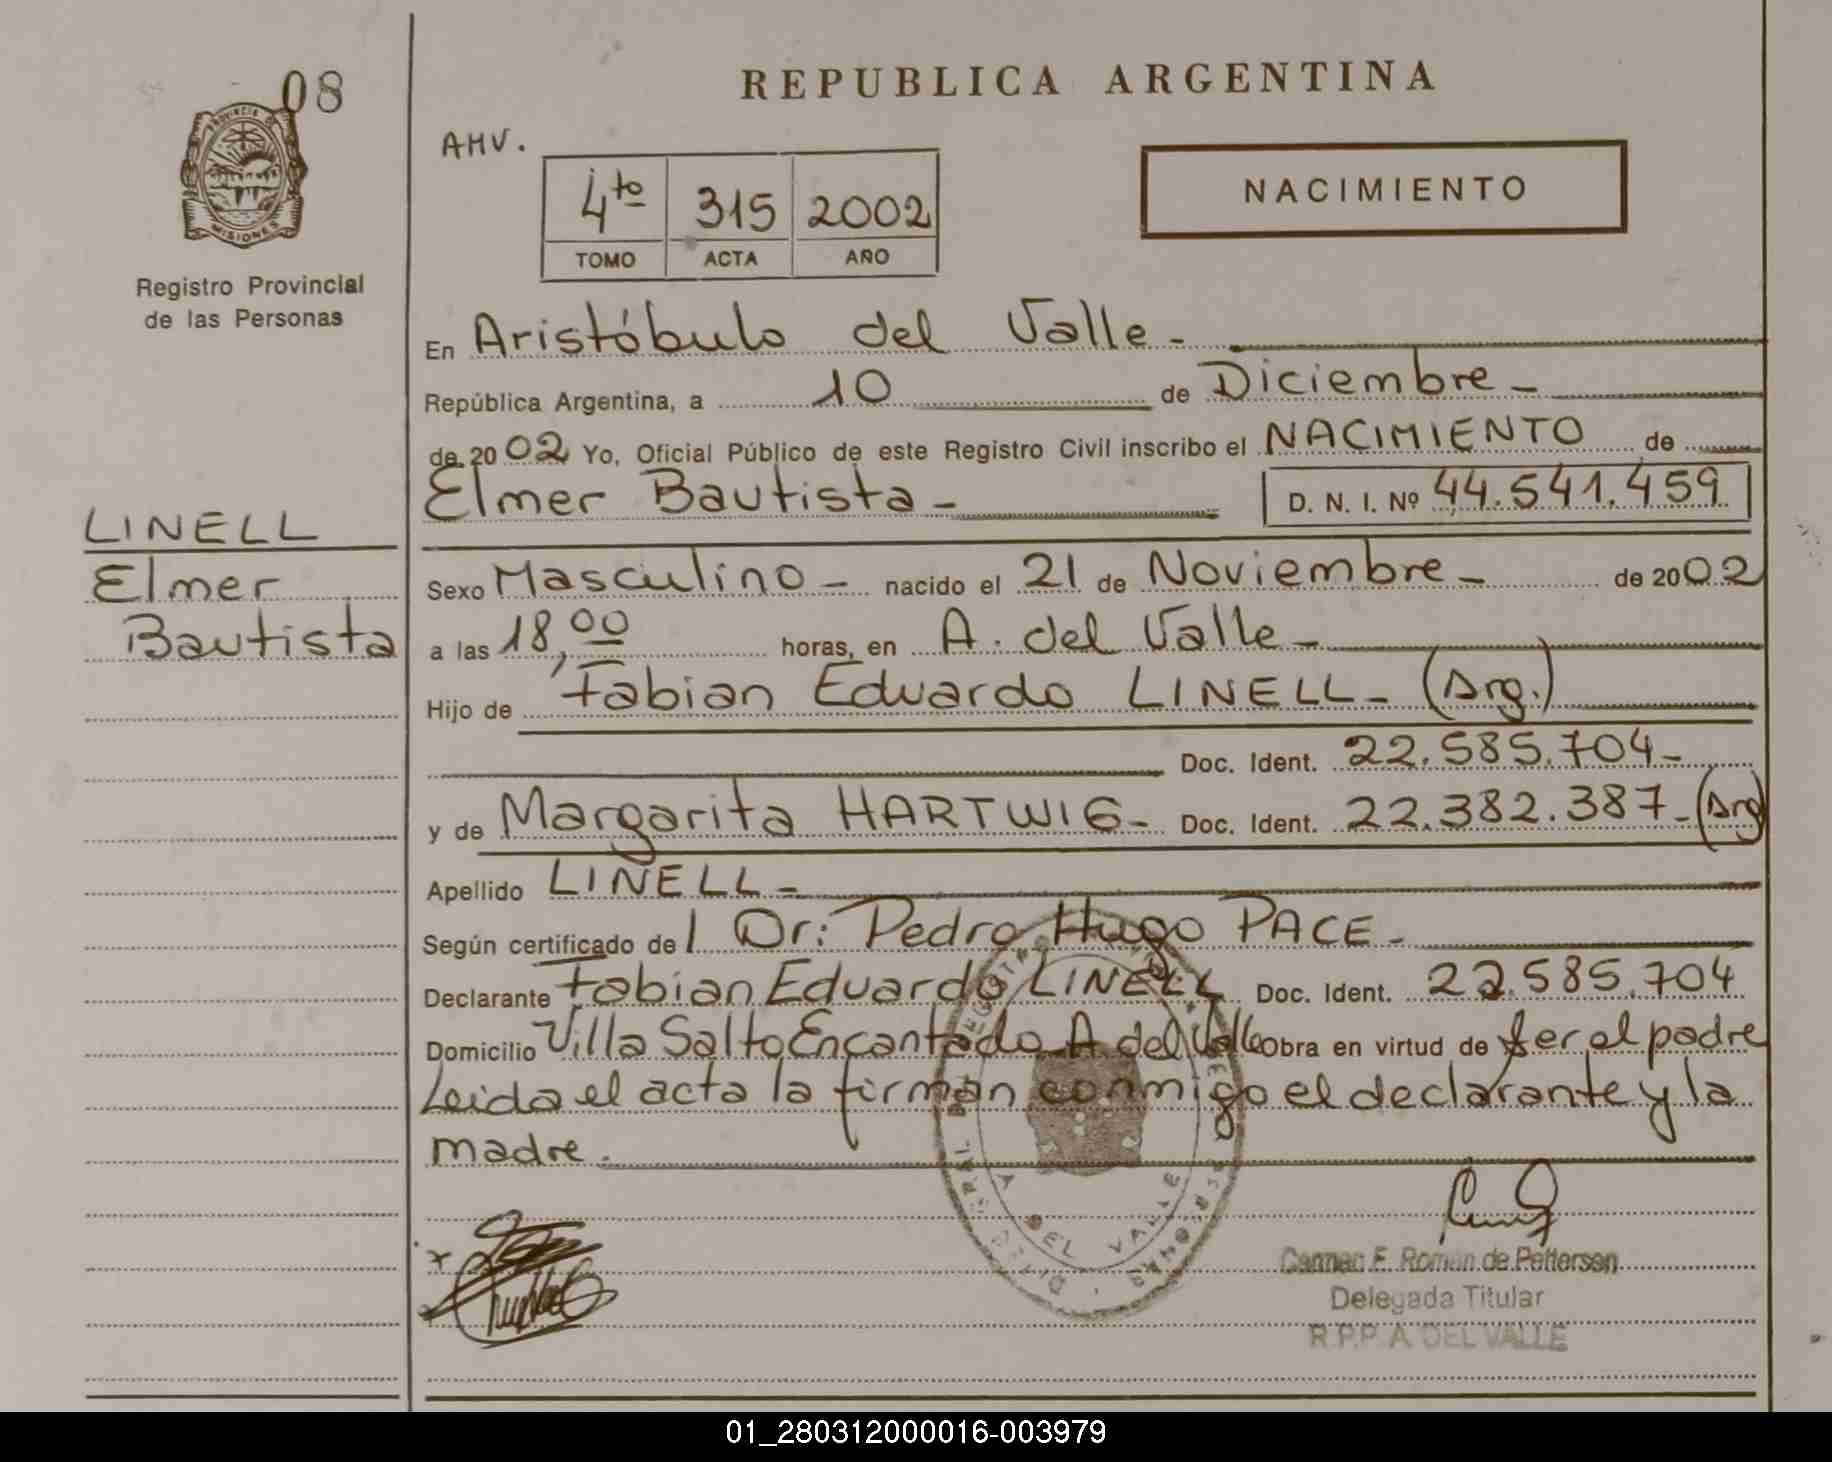 08
PROVINCIA DE
MISIONES
Registro Provincial
de las Personas
LINELL
Elmer
Bautista
REPUBLICA ARGENTINA
AMV.
4to 315 2002
TOMO ACTA AÑO
NACIMIENTO
En Aristóbulo del Valle -
República Argentina, a 10 de Diciembre -
de 2002 Yo, Oficial Público de este Registro Civil inscribo el NACIMIENTO de
Elmer Bautista - D. N. I. Nº 44.541.459
Sexo Masculino - nacido el 21 de Noviembre - de 2002
a las 18,00 horas, en A. del Valle -
Hijo de Fabian Eduardo LINELL - (Arg.)
Doc. Ident. 22.585.704 -
y de Margarita HARTWIG - Doc. Ident. 22.382.387 - (Arg)
Apellido LINELL -
Según certificado del Dr: Pedro Hugo PACE -
Declarante Fabian Eduardo LINELL Doc. Ident. 22.585.704
Domicilio Villa Salto Encantado A del Valle obra en virtud de ser el padre
Leida el acta la firman conmigo el declarante y la
madre.
A DEL VALLE
Carmen F. Román de Pettersen
Delegada Titular
R.P.P. A. DEL VALLE
01_280312000016-003979